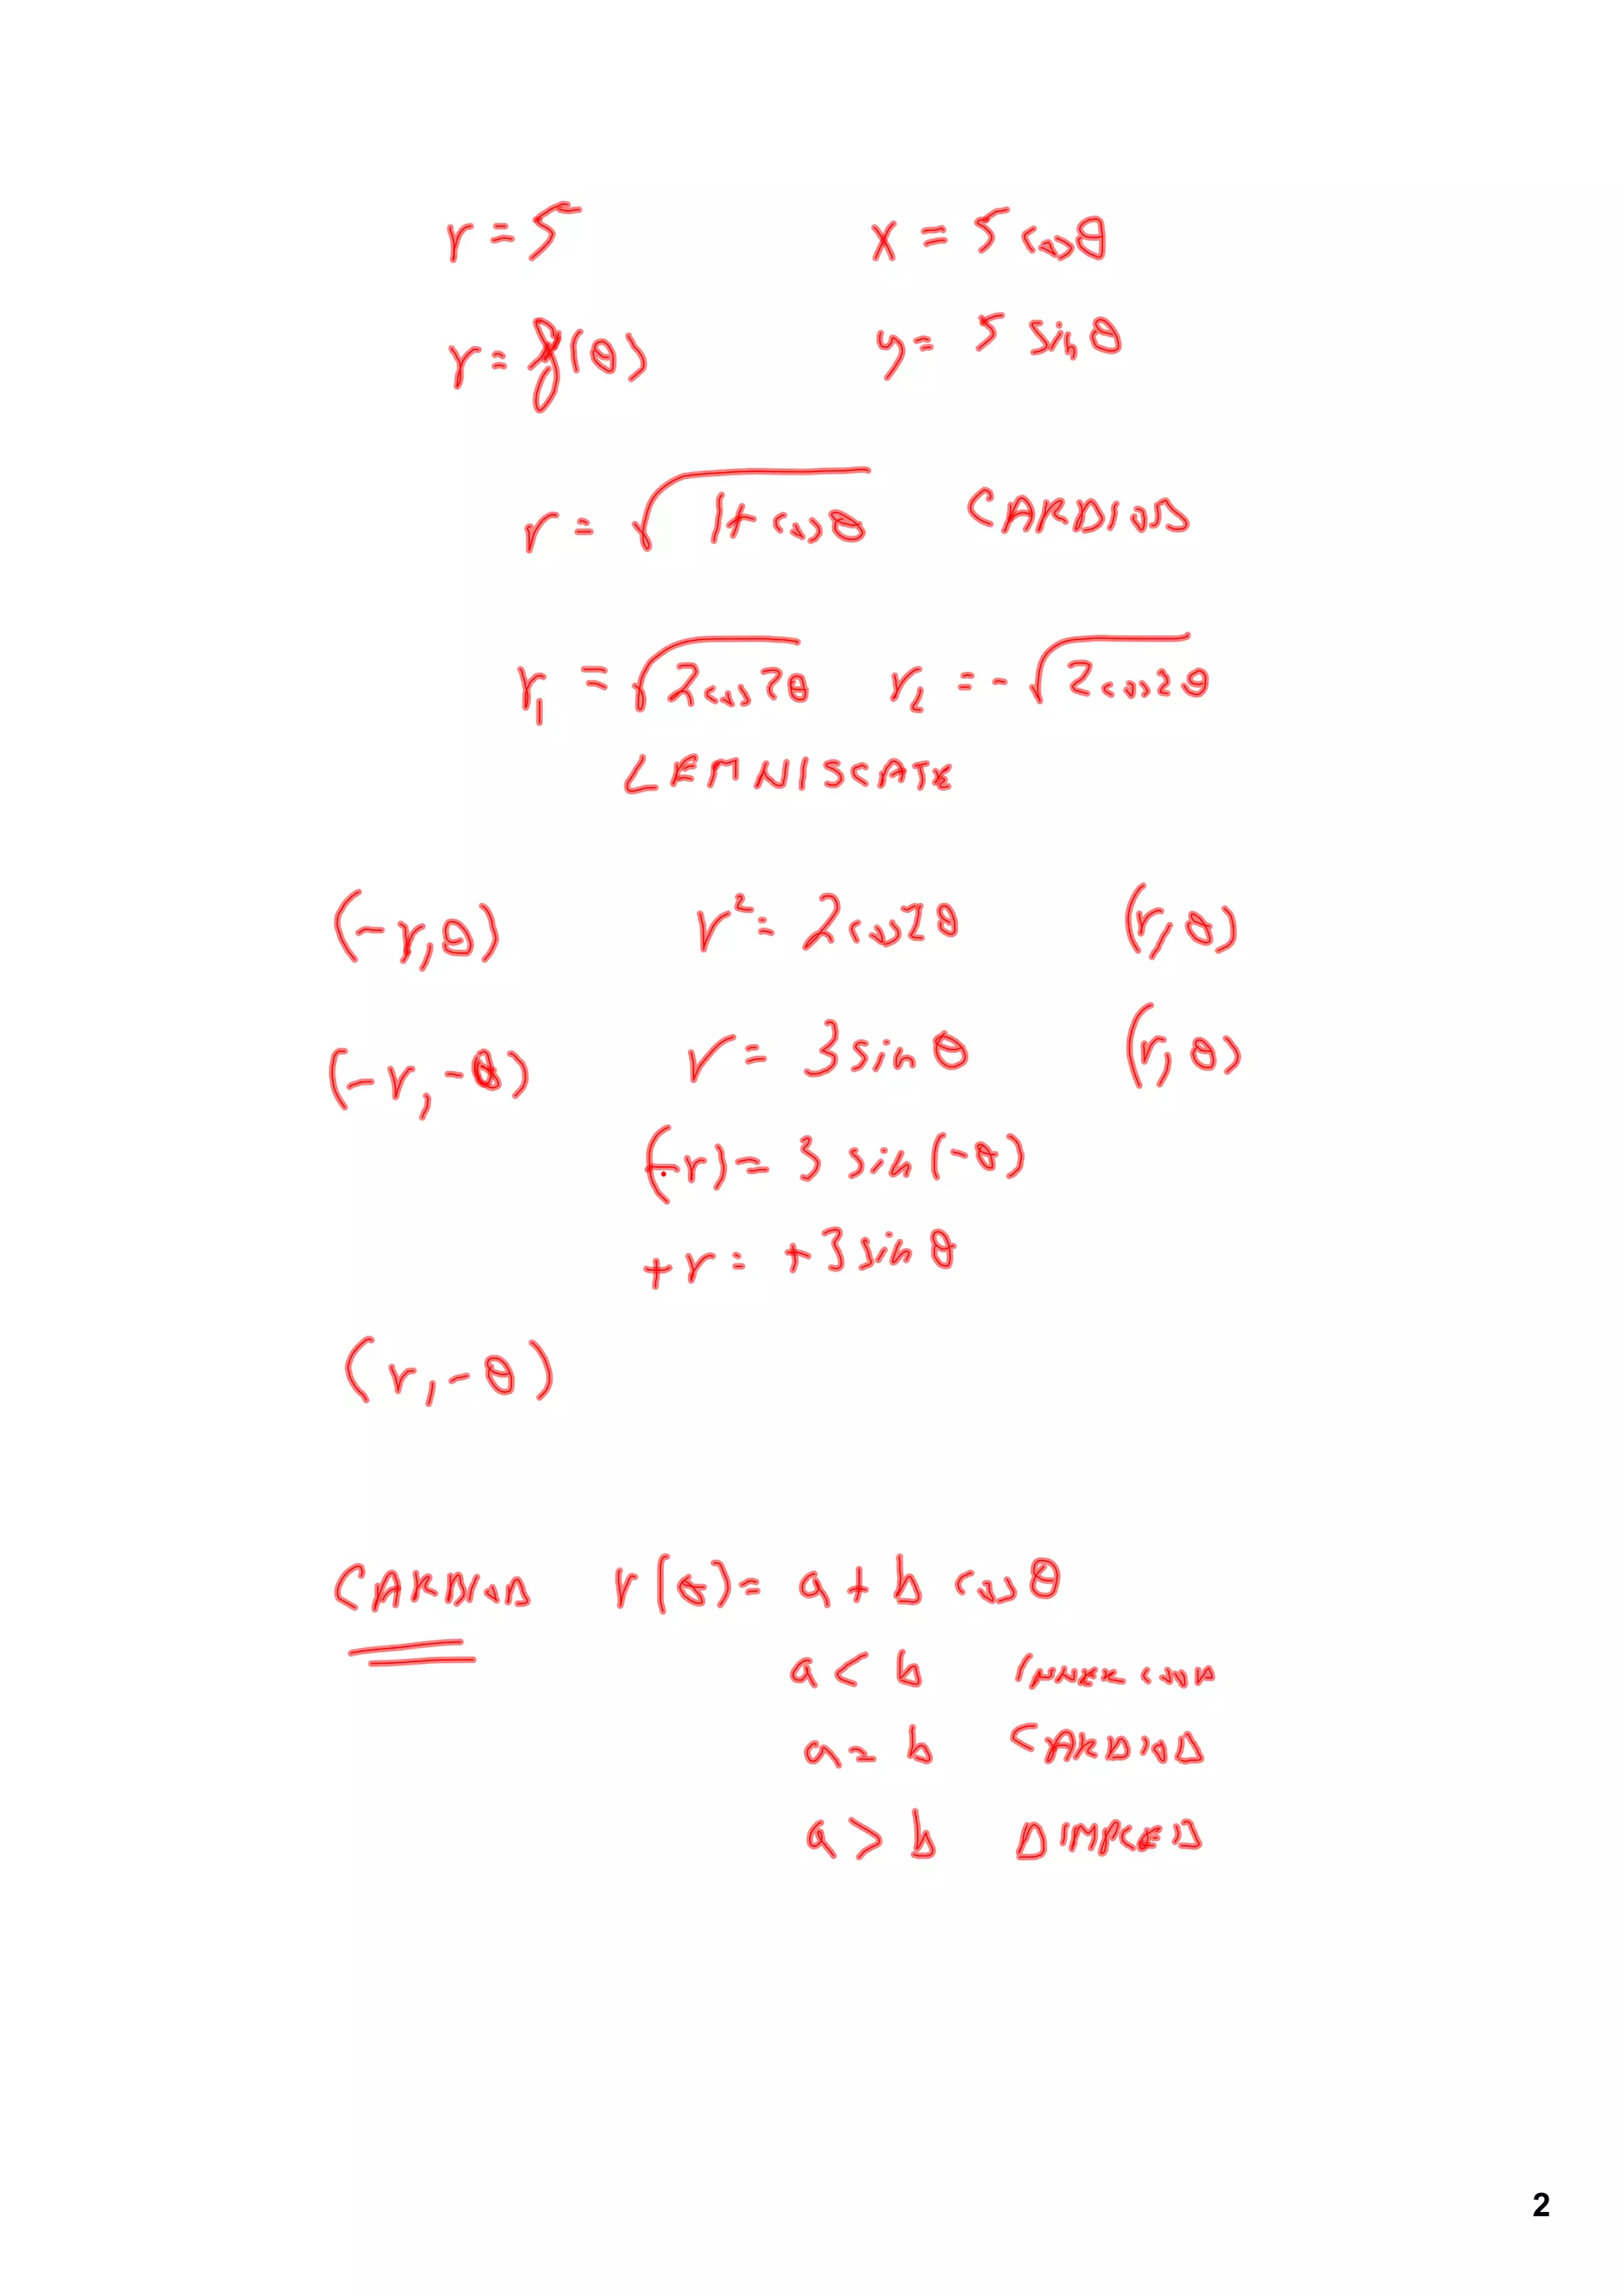 r = 5 x = 5 cos θ
r = f(θ) y = 5 sin θ
r = √(1 + cos θ) CARDIOD
r₁ = √(2 cos 2θ) r₂ = -√(2 cos 2θ)
LEMNISCATE
(-r, θ) r² = 2 cos 2θ (r, θ)
(-r, -θ) r = 3 sin θ (r, θ)
(-r) = 3 sin(-θ)
+r = +3 sin θ
(r, -θ)
CARDIOD r(θ) = a + b cos θ
a < b INNER
a = b CARDIOD
a > b DIMPLED
2